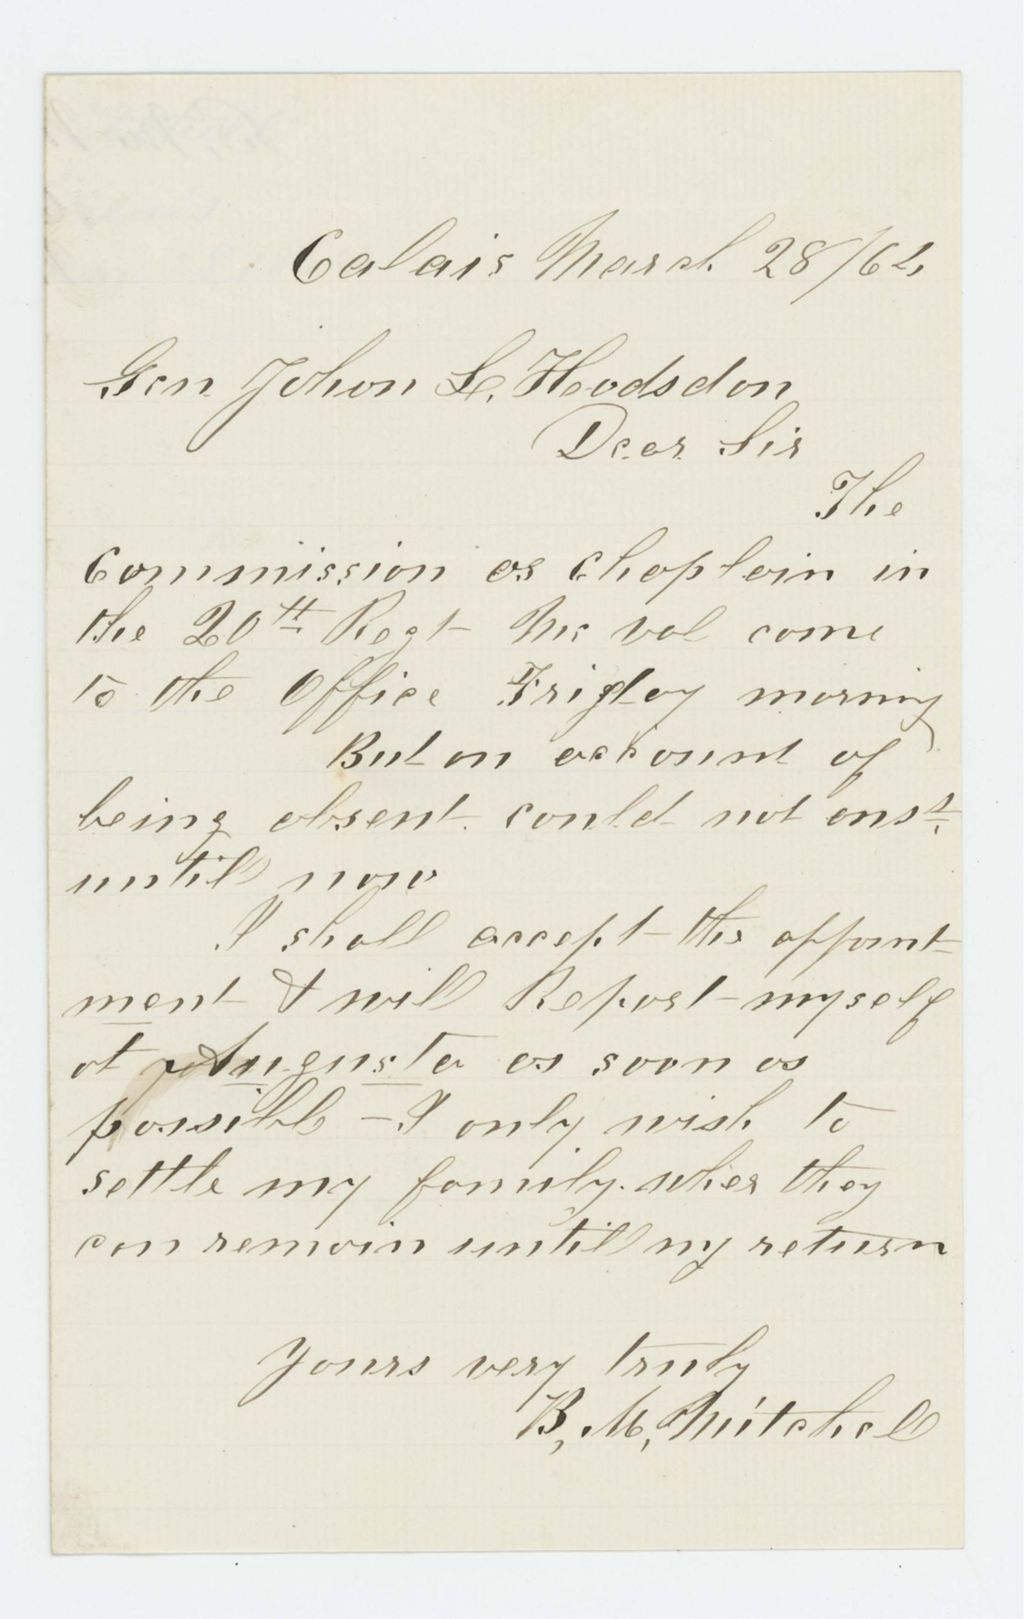 Calais March 28/64,
Gen John L. Hodsdon
Dear Sir
The
Commission as Chaplain in
the 20th Regt Me Vol came
to the Office Friday morning
But on account of
being absent could not ansr.
until now
I shall accept the appoint
ment & will Report myself
at Augusta as soon as
possible - I only wish to
settle my family wher they
can remain until my return
Yours very truly
B, M, Mitchell